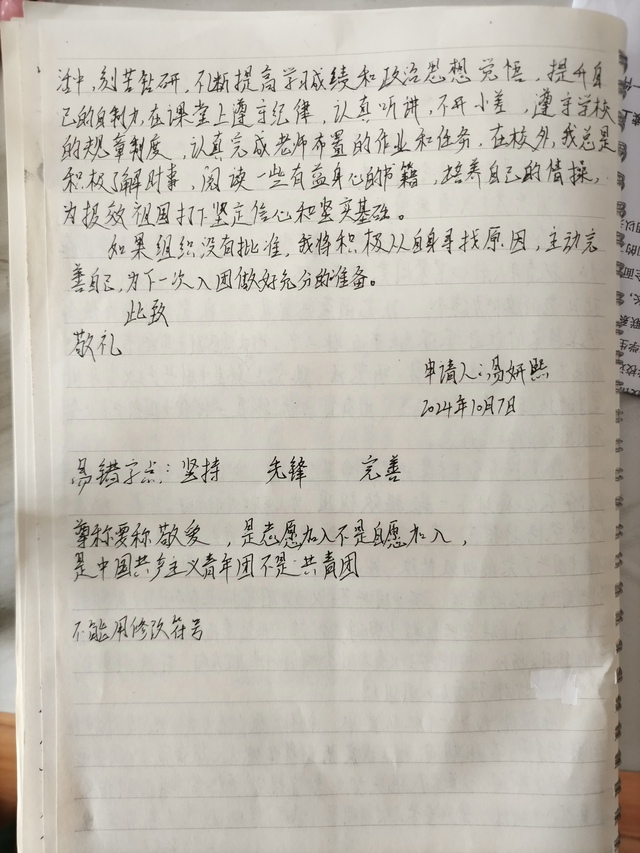 活中，刻苦钻研，不断提高学习成绩和政治思想觉悟，提升自
己的自制力，在课堂上遵守纪律，认真听讲，不开小差，遵守学校
的规章制度，认真完成老师布置的作业和任务，在校外，我总是
积极了解时事，阅读一些有益身心的书籍，培养自己的情操，
为报效祖国打下坚定信心和坚实基础。
如果组织没有批准，我将积极从自身寻找原因，主动完
善自己，为下一次入团做好充分的准备。
此致
敬礼
申请人：汤妍熙
2024年10月7日
易错字点：坚持 先锋 完善
尊称要称敬爱，是志愿加入不是自愿加入，
是中国共产主义青年团不是共青团
不能用修改符号